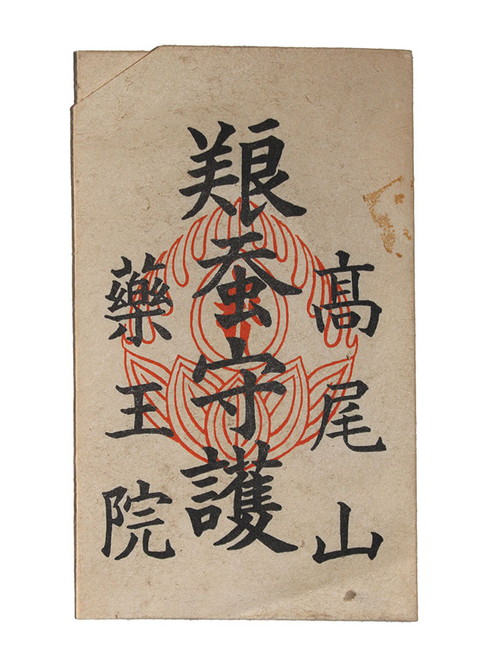 髙尾山
羪蚕守護
藥王院